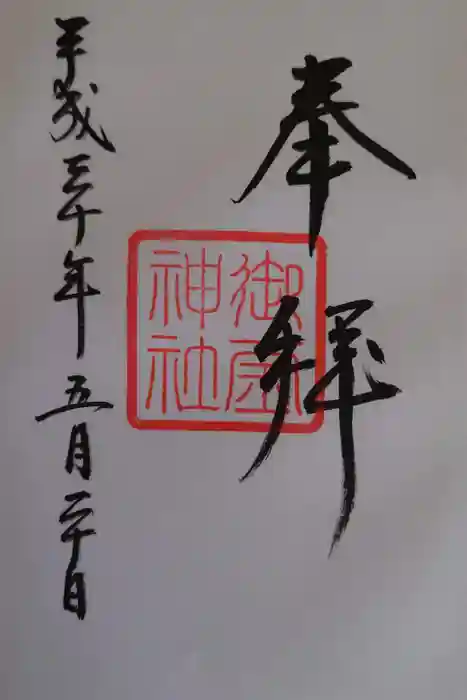 奉拝
御
神社
平成三十年五月二十日